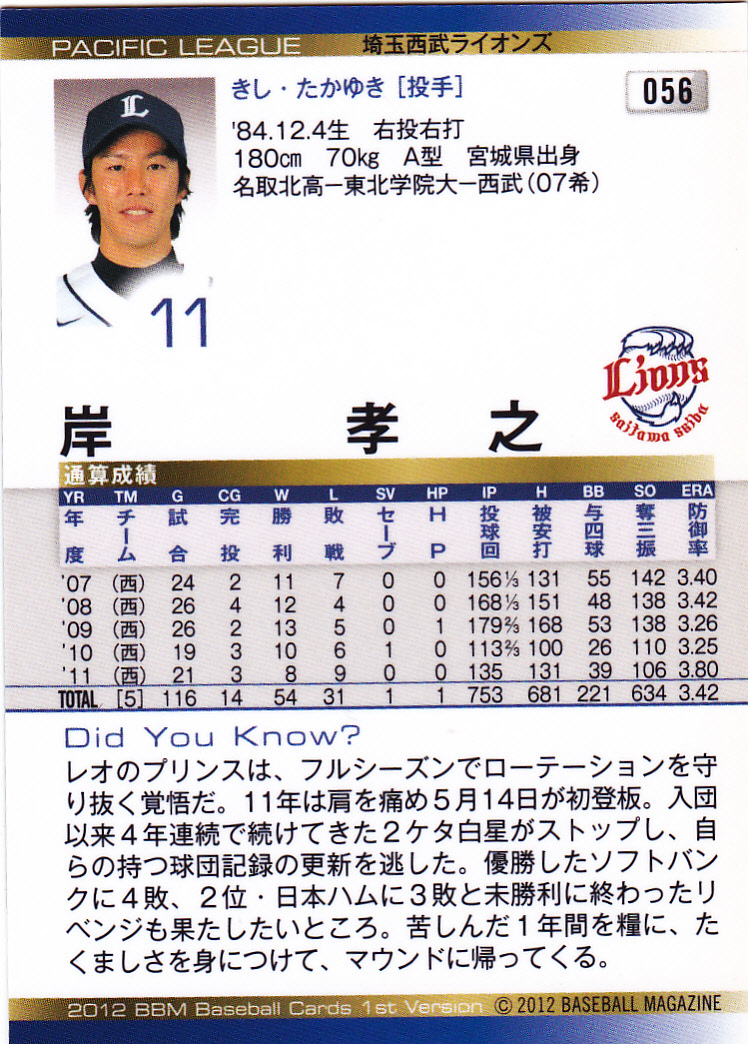 PACIFIC LEAGUE 埼玉西武ライオンズ
きし・たかゆき [投手] 056
'84.12.4生 右投右打
180cm 70kg A型 宮城県出身
名取北高ー東北学院大ー西武(07希)
L
11
Lions
Saitama Seibu
岸 孝之
通算成績
YR TM G CG W L SV HP IP H BB SO ERA
年度 チーム 試合 完投 勝利 敗戦 セーブ HP 投球回 被安打 与四球 奪三振 防御率
'07 (西) 24 2 11 7 0 0 156⅓ 131 55 142 3.40
'08 (西) 26 4 12 4 0 0 168⅓ 151 48 138 3.42
'09 (西) 26 2 13 5 0 1 179⅔ 168 53 138 3.26
'10 (西) 19 3 10 6 1 0 113⅔ 100 26 110 3.25
'11 (西) 21 3 8 9 0 0 135 131 39 106 3.80
TOTAL [5] 116 14 54 31 1 1 753 681 221 634 3.42
Did You Know?
レオのプリンスは、フルシーズンでローテーションを守
り抜く覚悟だ。11年は肩を痛め5月14日が初登板。入団
以来4年連続で続けてきた2ケタ白星がストップし、自
らの持つ球団記録の更新を逃した。優勝したソフトバン
クに4敗、2位・日本ハムに3敗と未勝利に終わったリ
ベンジも果たしたいところ。苦しんだ1年間を糧に、た
くましさを身につけて、マウンドに帰ってくる。
2012 BBM Baseball Cards 1st Version © 2012 BASEBALL MAGAZINE